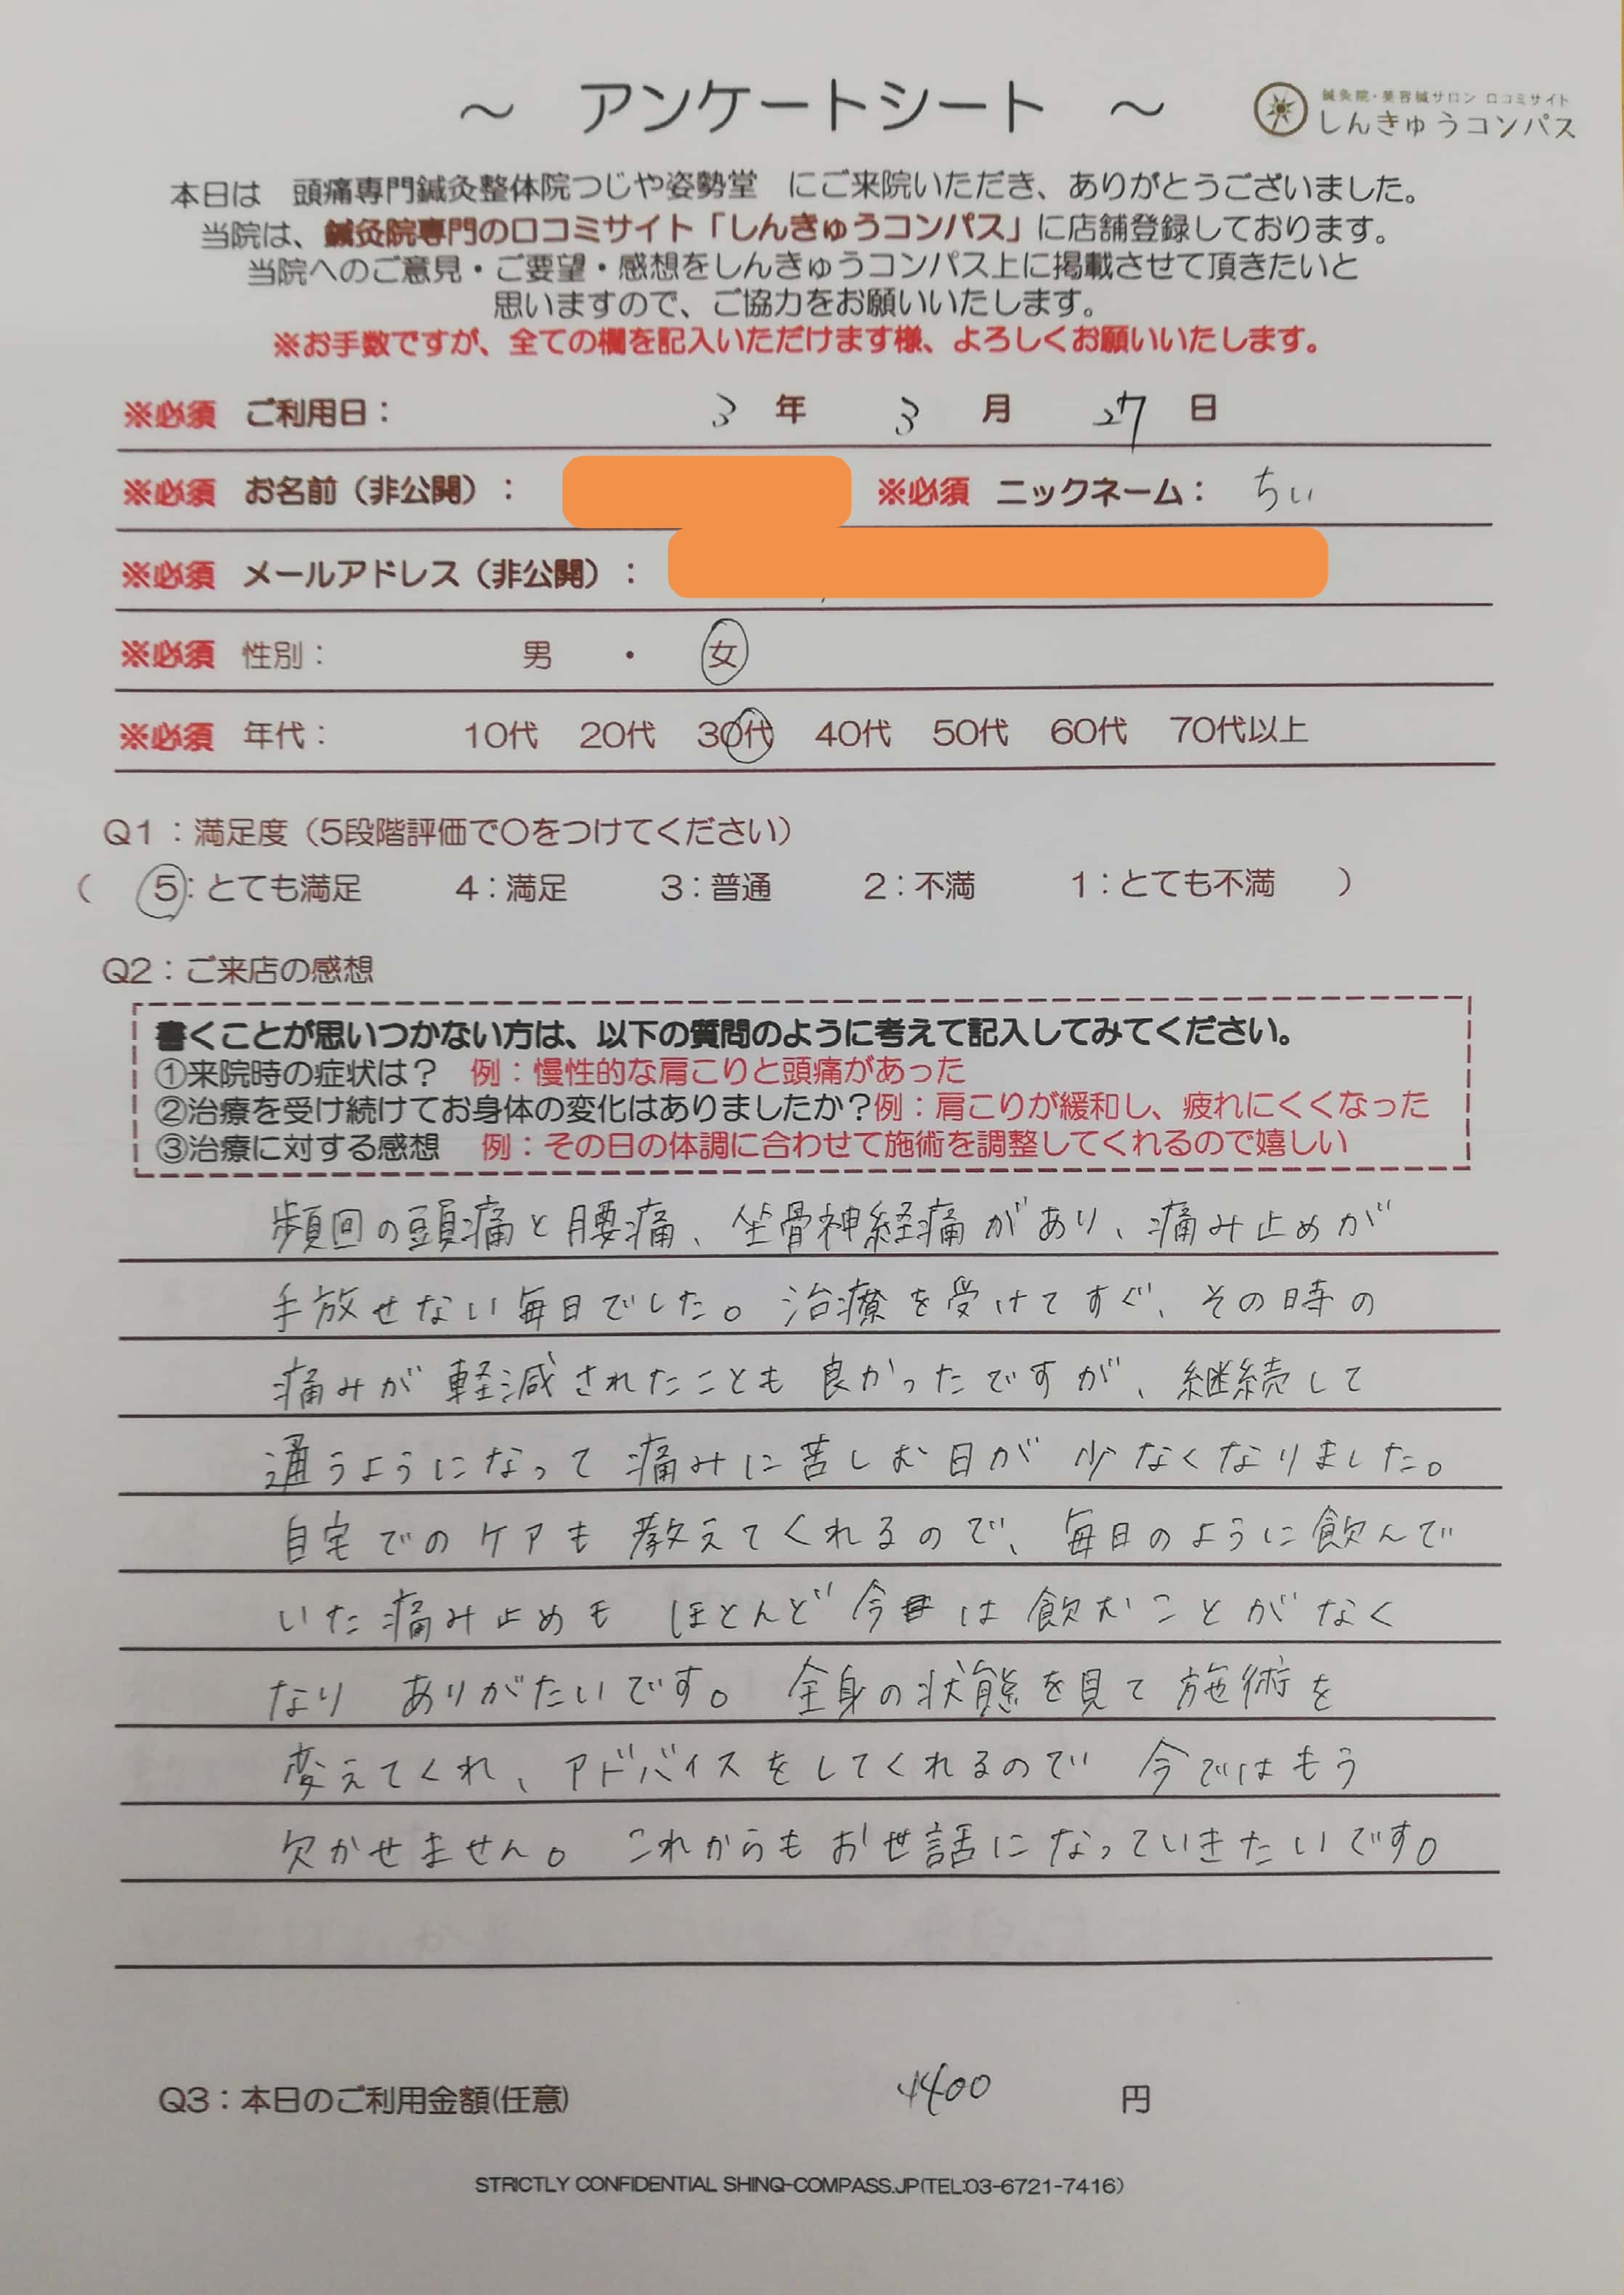 ～ アンケートシート ～
鍼灸院・美容鍼サロン 口コミサイト
しんきゅうコンパス
本日は 頭痛専門鍼灸整体院つじや姿勢堂 にご来院いただき、ありがとうございました。
当院は、鍼灸院専門の口コミサイト「しんきゅうコンパス」に店舗登録しております。
当院へのご意見・ご要望・感想をしんきゅうコンパス上に掲載させて頂きたいと
思いますので、ご協力をお願いいたします。
※お手数ですが、全ての欄を記入いただけます様、よろしくお願いいたします。
※必須 ご利用日： 3 年 3 月 27 日
※必須 お名前（非公開）： ※必須 ニックネーム： ちぃ
※必須 メールアドレス（非公開）：
※必須 性別： 男 ・ 女
※必須 年代： 10代 20代 30代 40代 50代 60代 70代以上
Q1：満足度（5段階評価で〇をつけてください）
（ 5：とても満足 4：満足 3：普通 2：不満 1：とても不満 ）
Q2：ご来店の感想
書くことが思いつかない方は、以下の質問のように考えて記入してみてください。
①来院時の症状は？ 例：慢性的な肩こりと頭痛があった
②治療を受け続けてお身体の変化はありましたか？例：肩こりが緩和し、疲れにくくなった
③治療に対する感想 例：その日の体調に合わせて施術を調整してくれるので嬉しい
頻回の頭痛と腰痛、坐骨神経痛があり、痛み止めが
手放せない毎日でした。治療を受けてすぐ、その時の
痛みが軽減されたことも良かったですが、継続して
通うようになって痛みに苦しむ日が少なくなりました。
自宅でのケアも教えてくれるので、毎日のように飲んで
いた痛み止めも ほとんど今は飲むことがなく
なり ありがたいです。全身の状態を見て施術を
変えてくれ、アドバイスをしてくれるので 今ではもう
欠かせません。これからもお世話になっていきたいです。
Q3：本日のご利用金額(任意) 4400 円
STRICTLY CONFIDENTIAL SHINQ-COMPASS.JP(TEL:03-6721-7416)